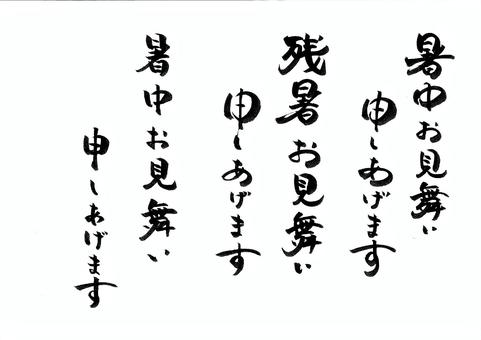 暑中お見舞い
申しあげます
残暑お見舞い
申しあげます
暑中お見舞い
申しあげます